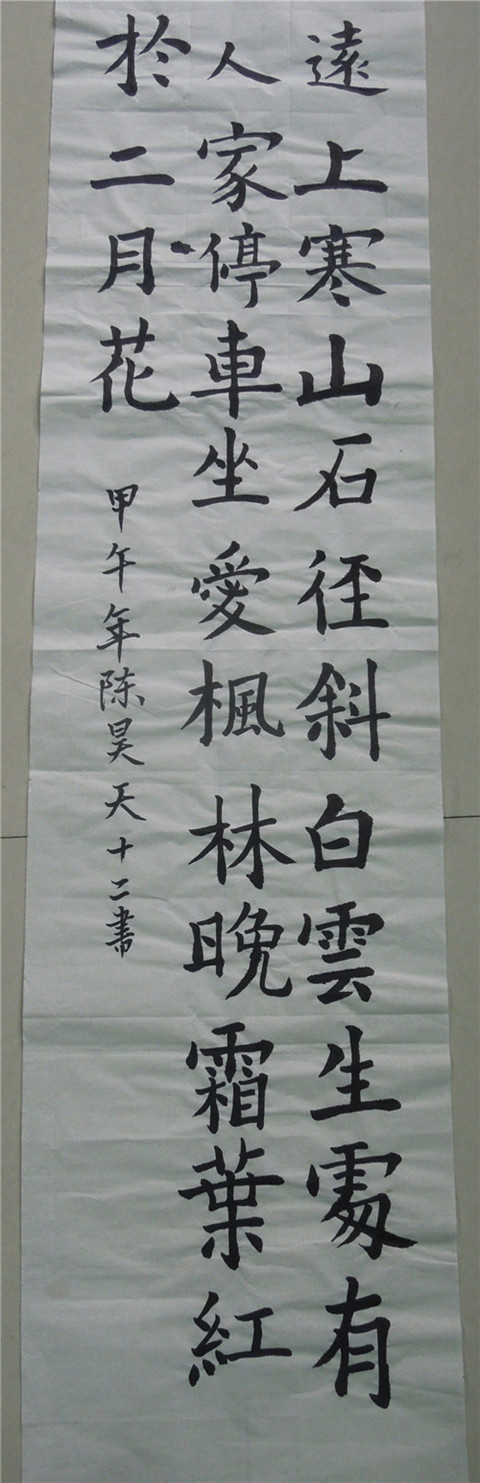 遠上寒山石徑斜白雲生處有
人家停車坐愛楓林晚霜葉紅
於二月花
甲午年陈昊天十二書